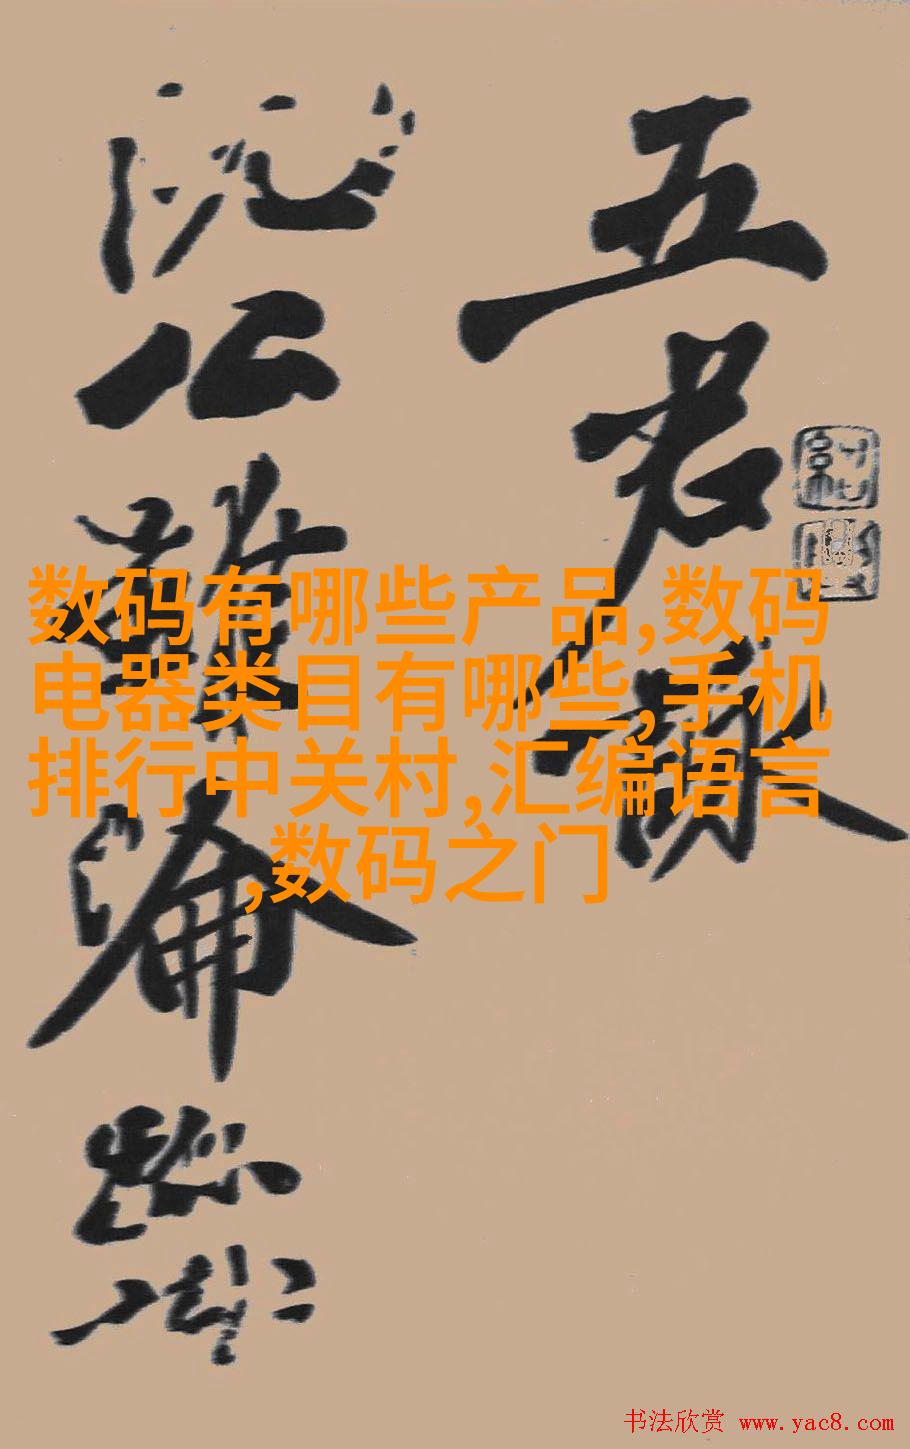 五君詠
阮公雖淪跡
数码有哪些产品,数码
电器类目有哪些,手机
排行中关村,汇编语言
,数码之门
书法欣赏 www.yac8.com